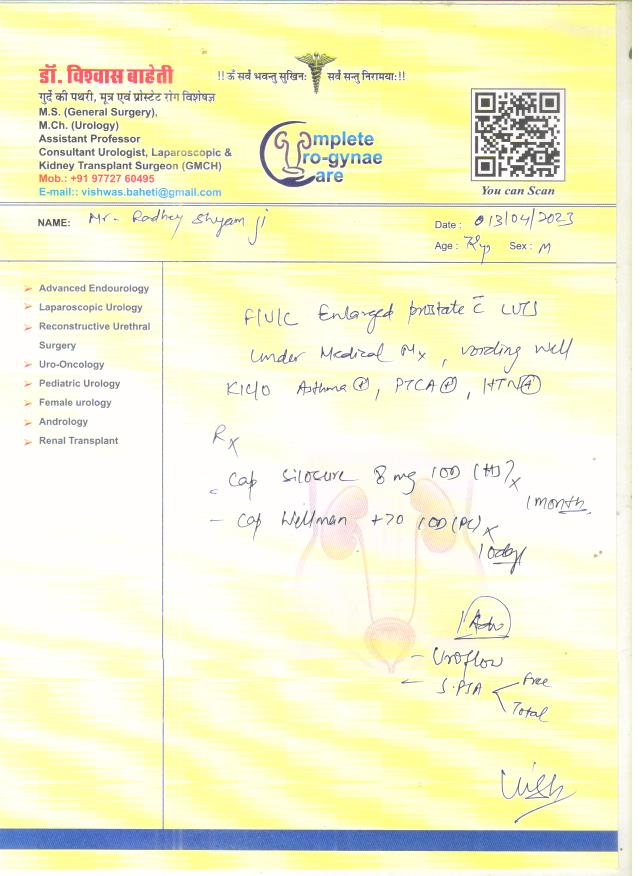 डॉ. विश्वास बाहेती
गुर्दे की पथरी, मूत्र एवं प्रोस्टेट रोग विशेषज्ञ
M.S. (General Surgery),
M.Ch. (Urology)
Assistant Professor
Consultant Urologist, Laparoscopic &
Kidney Transplant Surgeon (GMCH)
Mob.: +91 97727 60495
E-mail:: vishwas.baheti@gmail.com
!! ॐ सर्वे भवन्तु सुखिनः सर्वे सन्तु निरामयाः!!
Complete
Uro-gynae
Care
You can Scan
NAME: Mr. Radhey Shyam ji
Date : 13/04/2023
Age : Sex : M
Advanced Endourology
Laparoscopic Urology
Reconstructive Urethral
Surgery
Uro-Oncology
Pediatric Urology
Female urology
Andrology
Renal Transplant
F/U/C Enlarged prostate c̄ LUTS
Under Medical Mx, voiding well
K/C/O Asthma (+), PTCA (+), HTN (+)
Rx
- Cap Silosure 8 mg 1OD (HS) x
1 month
- Cap Wellman +70 1OD (PC) x
10 days
Adv
- Uroflow
- S.PSA Free
Total